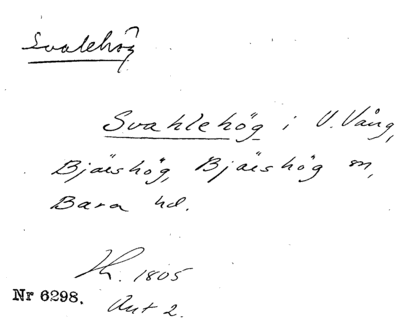 Svalehög
Svahlehög i V. Vång,
Bjärshög, Bjärshög sn,
Bara hd.
Th. 1805
Nr 6298. Avt 2.